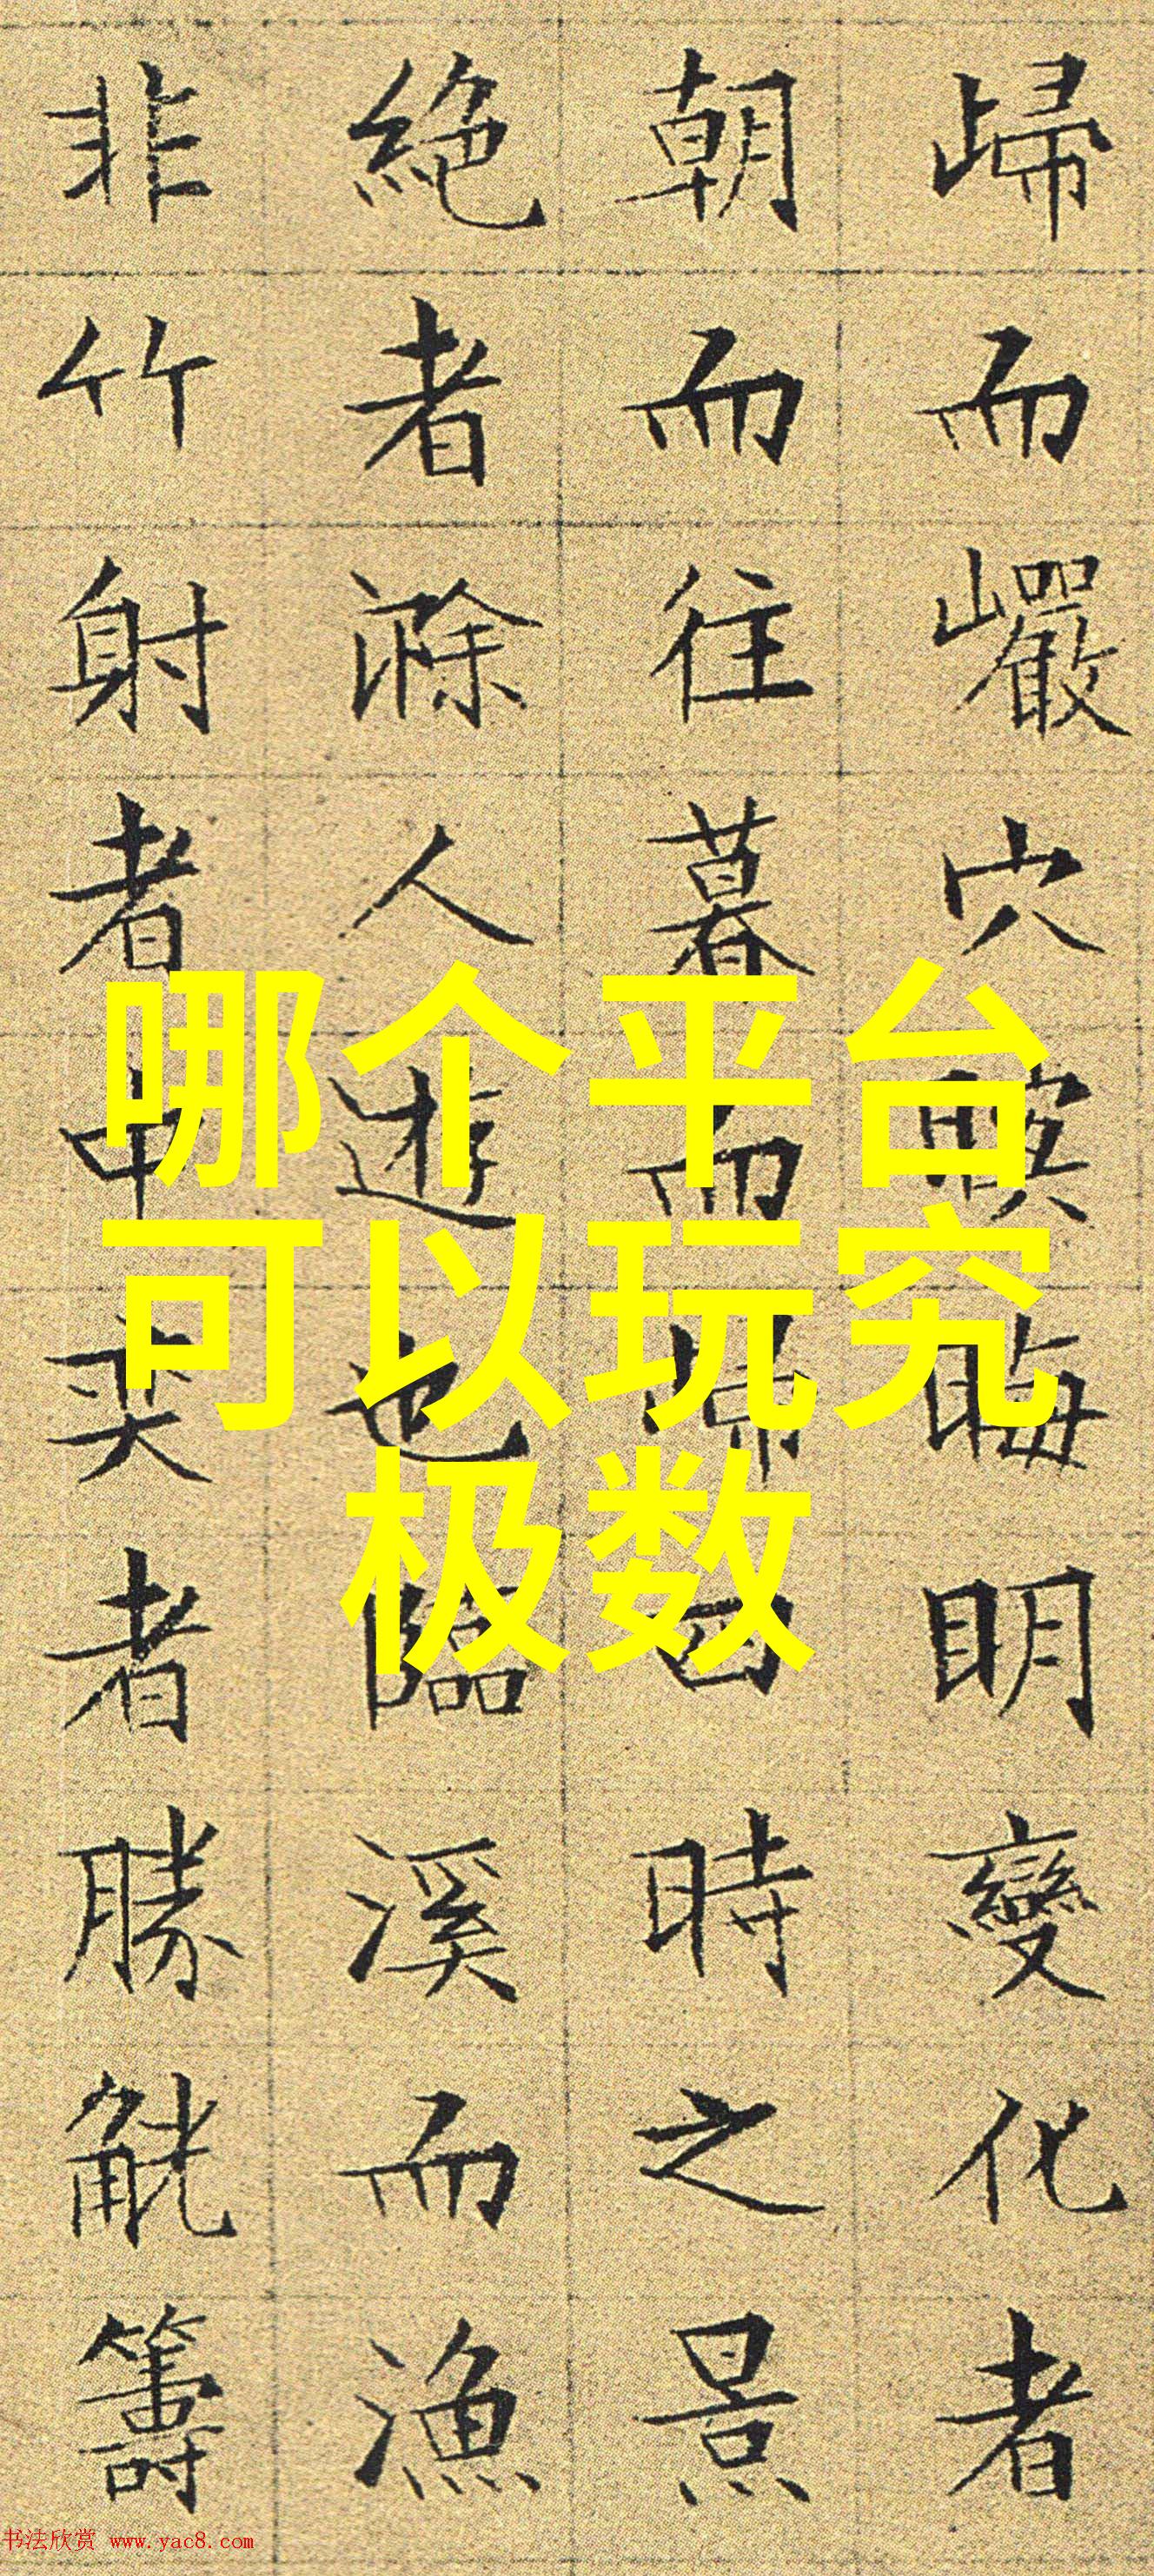 歸而巗穴暝晦明變化者
朝而往暮而歸四時之景
絕者滁人遊也臨溪而漁
非竹射者中奕者勝觥籌
哪个平台
可以玩究
极数
书法欣赏 www.yac8.com